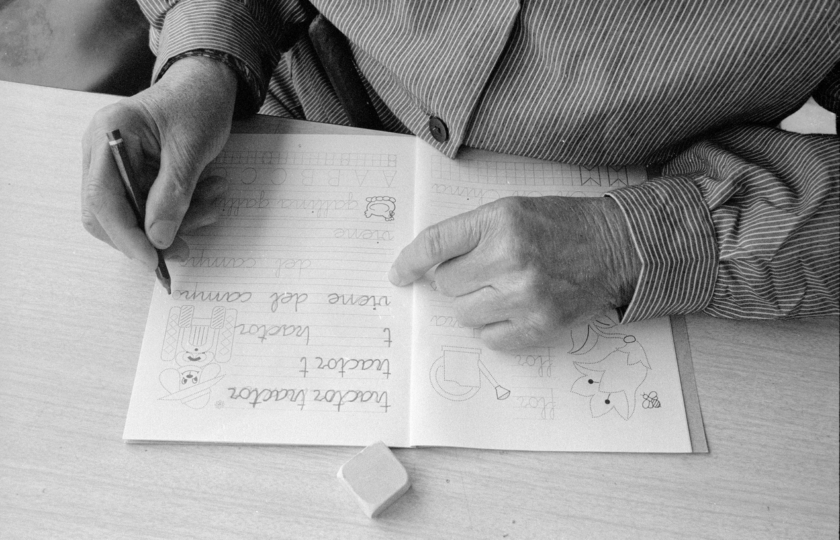 flor
flor
tractor tractor tractor
tractor t
t tractor
viene del campo
del campo
viene
gallina galli
A A B C C